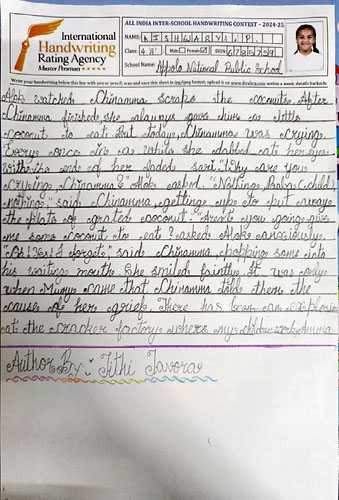 International
Handwriting
Rating Agency
Master Penman
ALL INDIA INTER-SCHOOL HANDWRITING CONTEST - 2024-25
NAME: AISHWARYA L.P.
Class: 4 'A' Male Female
School Name: Appolo National Public School
Write your handwriting below this line with pen or pencil, scan and save this sheet in jpg/jpeg format, upload it on
Alok watched Chinamma scrape the coconuts. After
Chinamma finished she always gave him a little
coconut to eat. But today, Chinamma was crying.
Every once in a while she dabbed at her eyes
with the end of her faded sari. "Why are you
crying, Chinamma?" Alok asked. "Nothing, Baba (child),
nothing," said Chinamma, getting up to put away
the plate of grated coconut. "Aren't you going give
me some coconut to eat? asked Alok anxiously.
I forgot," said Chinamma, popping some into
his waiting mouth. She smiled faintly. It was only
when came that Chinamma told them the
cause of her grief. There has been an explosion
at the cracker factory where my works Amma.
Author By: Tithi Tavora